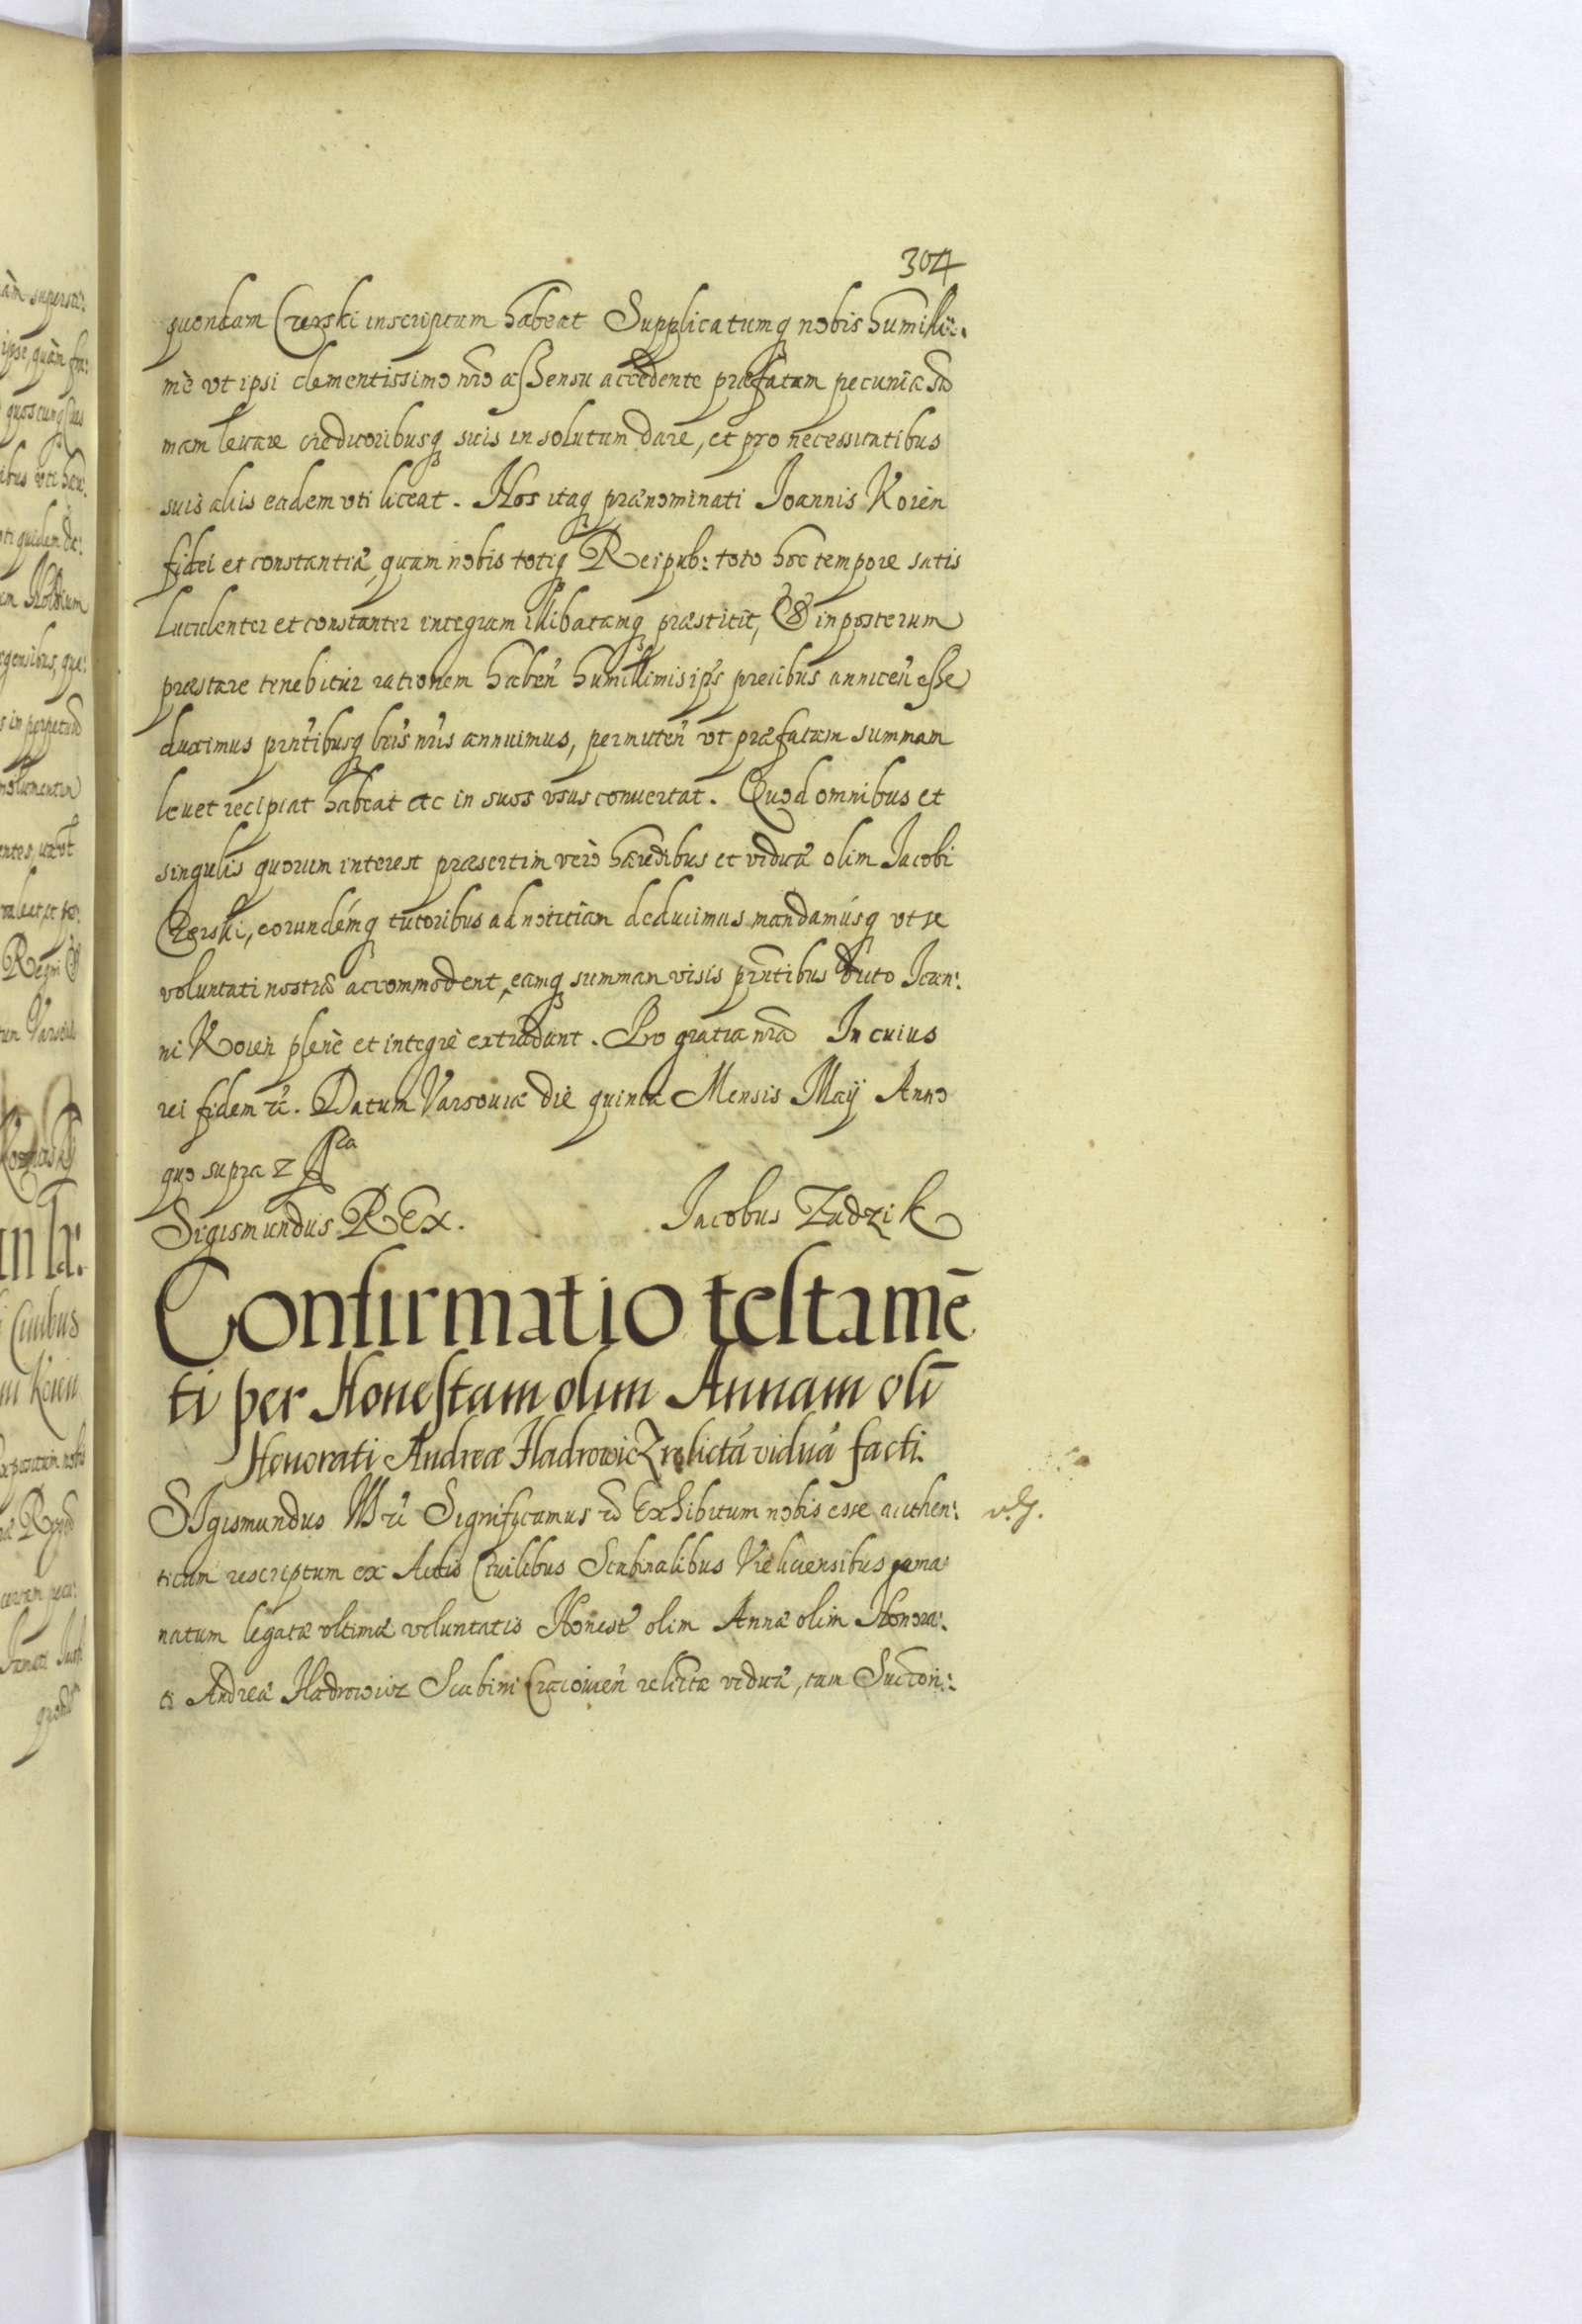 304
quondam Czerski inscriptum habeat Supplicatumq nobis humilli:
mè vt ipsi clementissimo nr̃o aßensu accedente præfatam pecuniæ sũ
mam leuare creditoribusq suis in solutum dare, et pro necessitatibus
suis aliis eadem vti liceat. Nos itaq prænominati Joannis Korien
fidei et constantiæ, quam nobis totiq Reipub: toto hoc tempore satis
Luculenter et constanter integram illibatamq præstitit, & in posterum
præstare tenebitur rationem haben̄ humillimis ip̃s precibus annuen̄ eße
duximus prñtibusq lr̃is nr̃is annuimus, permitten̄ vt præfatam summam
leuet recipiat habeat etc in suos vsus conuertat. Quod omnibus et
singulis quorum interest præsertim verò hæredibus et viduæ olim Jacobi
Czerski, eorundémq tutoribus ad notitiam deducimus mandamúsq vt se
voluntati nostræ accommodent, eamq summam visis prñtibus dicto Joan:
ni Korien plenè et integrè extradant. Pro gratia nr̃a In cuius
rei fidem &c̃. Datum Varsouiæ die quinta Mensis Maij Anno
quo supra
Sigismundus REx. Jacobus Zadzik
Confirmatio testamē
ti per Honestam olim Annam oli
Honorati Andreæ Hadrowicz relictā viduā facti.
SIgismundus III &c̃ Significamus &c̃ Exhibitum nobis esse authen:
ticum rescriptum ex Actis Ciuilibus Scabinalibus Vieliciensibus ema
natum legatæ vltimæ voluntatis Honestæ olim Annæ olim Honora:
ti Andreæ Hadrowicz Scabini Cracouien̄ relictæ viduæ, tam